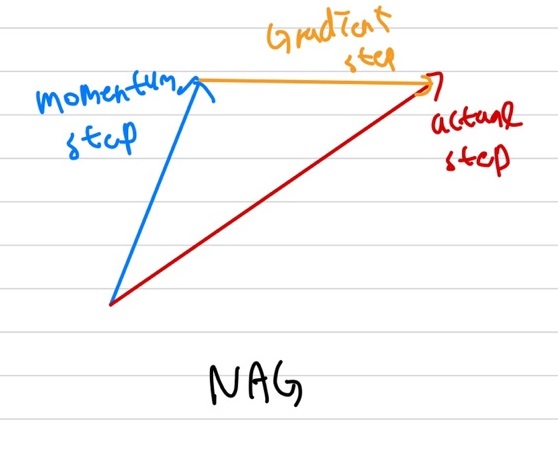 Gradient
step
momentum
step
actual
step
NAG